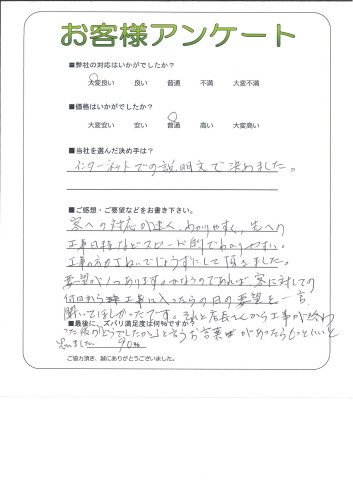 お客様アンケート
■弊社の対応はいかがでしたか?
大変良い 良い 普通 不満 大変不満
■価格はいかがでしたか?
大変安い 安い 普通 高い 大変高い
■当社を選んだ決め手は?
インターネットでの説明文で決めました。
■ご感想・ご要望などをお書き下さい。
客への対応が速く、わかりやすく、先への
工事日時などスピード的でわかりやすい。
工事の方がていねいでじょうずにして頂きました。
要望が1つあります。かなうのであれば、客に対しての
何日から 工事に入ったらの日の要望を一言
聞いてほしかったです。それと店長さんから工事が終わ
■最後に、ズバリ満足度は何%ですか?
った後の「どうでしたか」と言うお言葉があったらもっといいと
思いました。 90%
ご協力頂き、誠にありがとうございました。